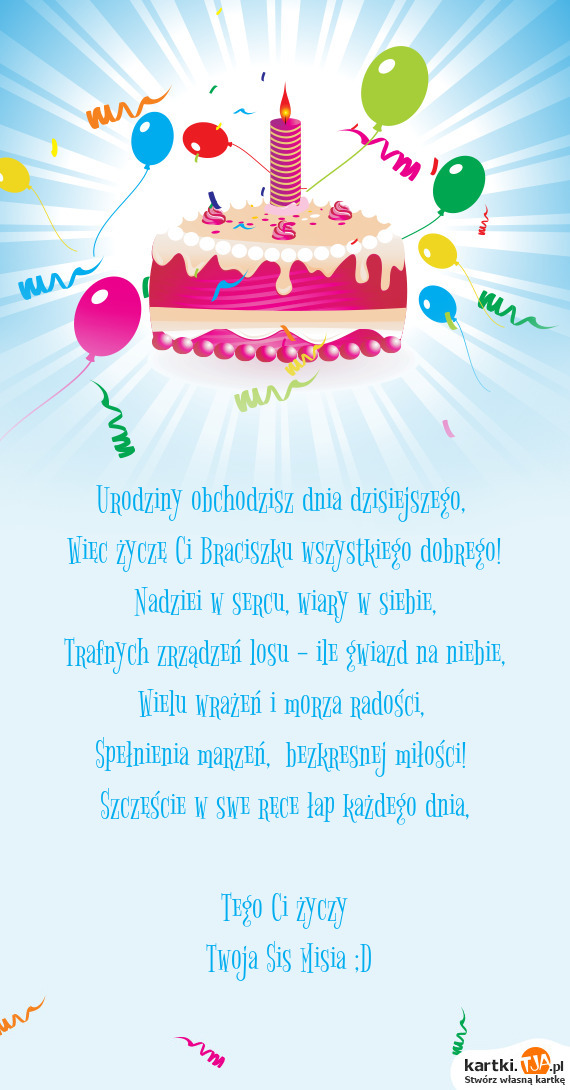 Urodziny obchodzisz dnia dzisiejszego,
Więc życzę Ci Braciszku wszystkiego dobrego!
Nadziei w sercu, wiary w siebie,
Trafnych zrządzeń losu – ile gwiazd na niebie,
Wielu wrażeń i morza radości,
Spełnienia marzeń, bezkresnej miłości!
Szczęście w swe ręce łap każdego dnia,
Tego Ci życzy
Twoja Sis Misia ;D
kartki.TJA.pl
Stwórz własną kartkę